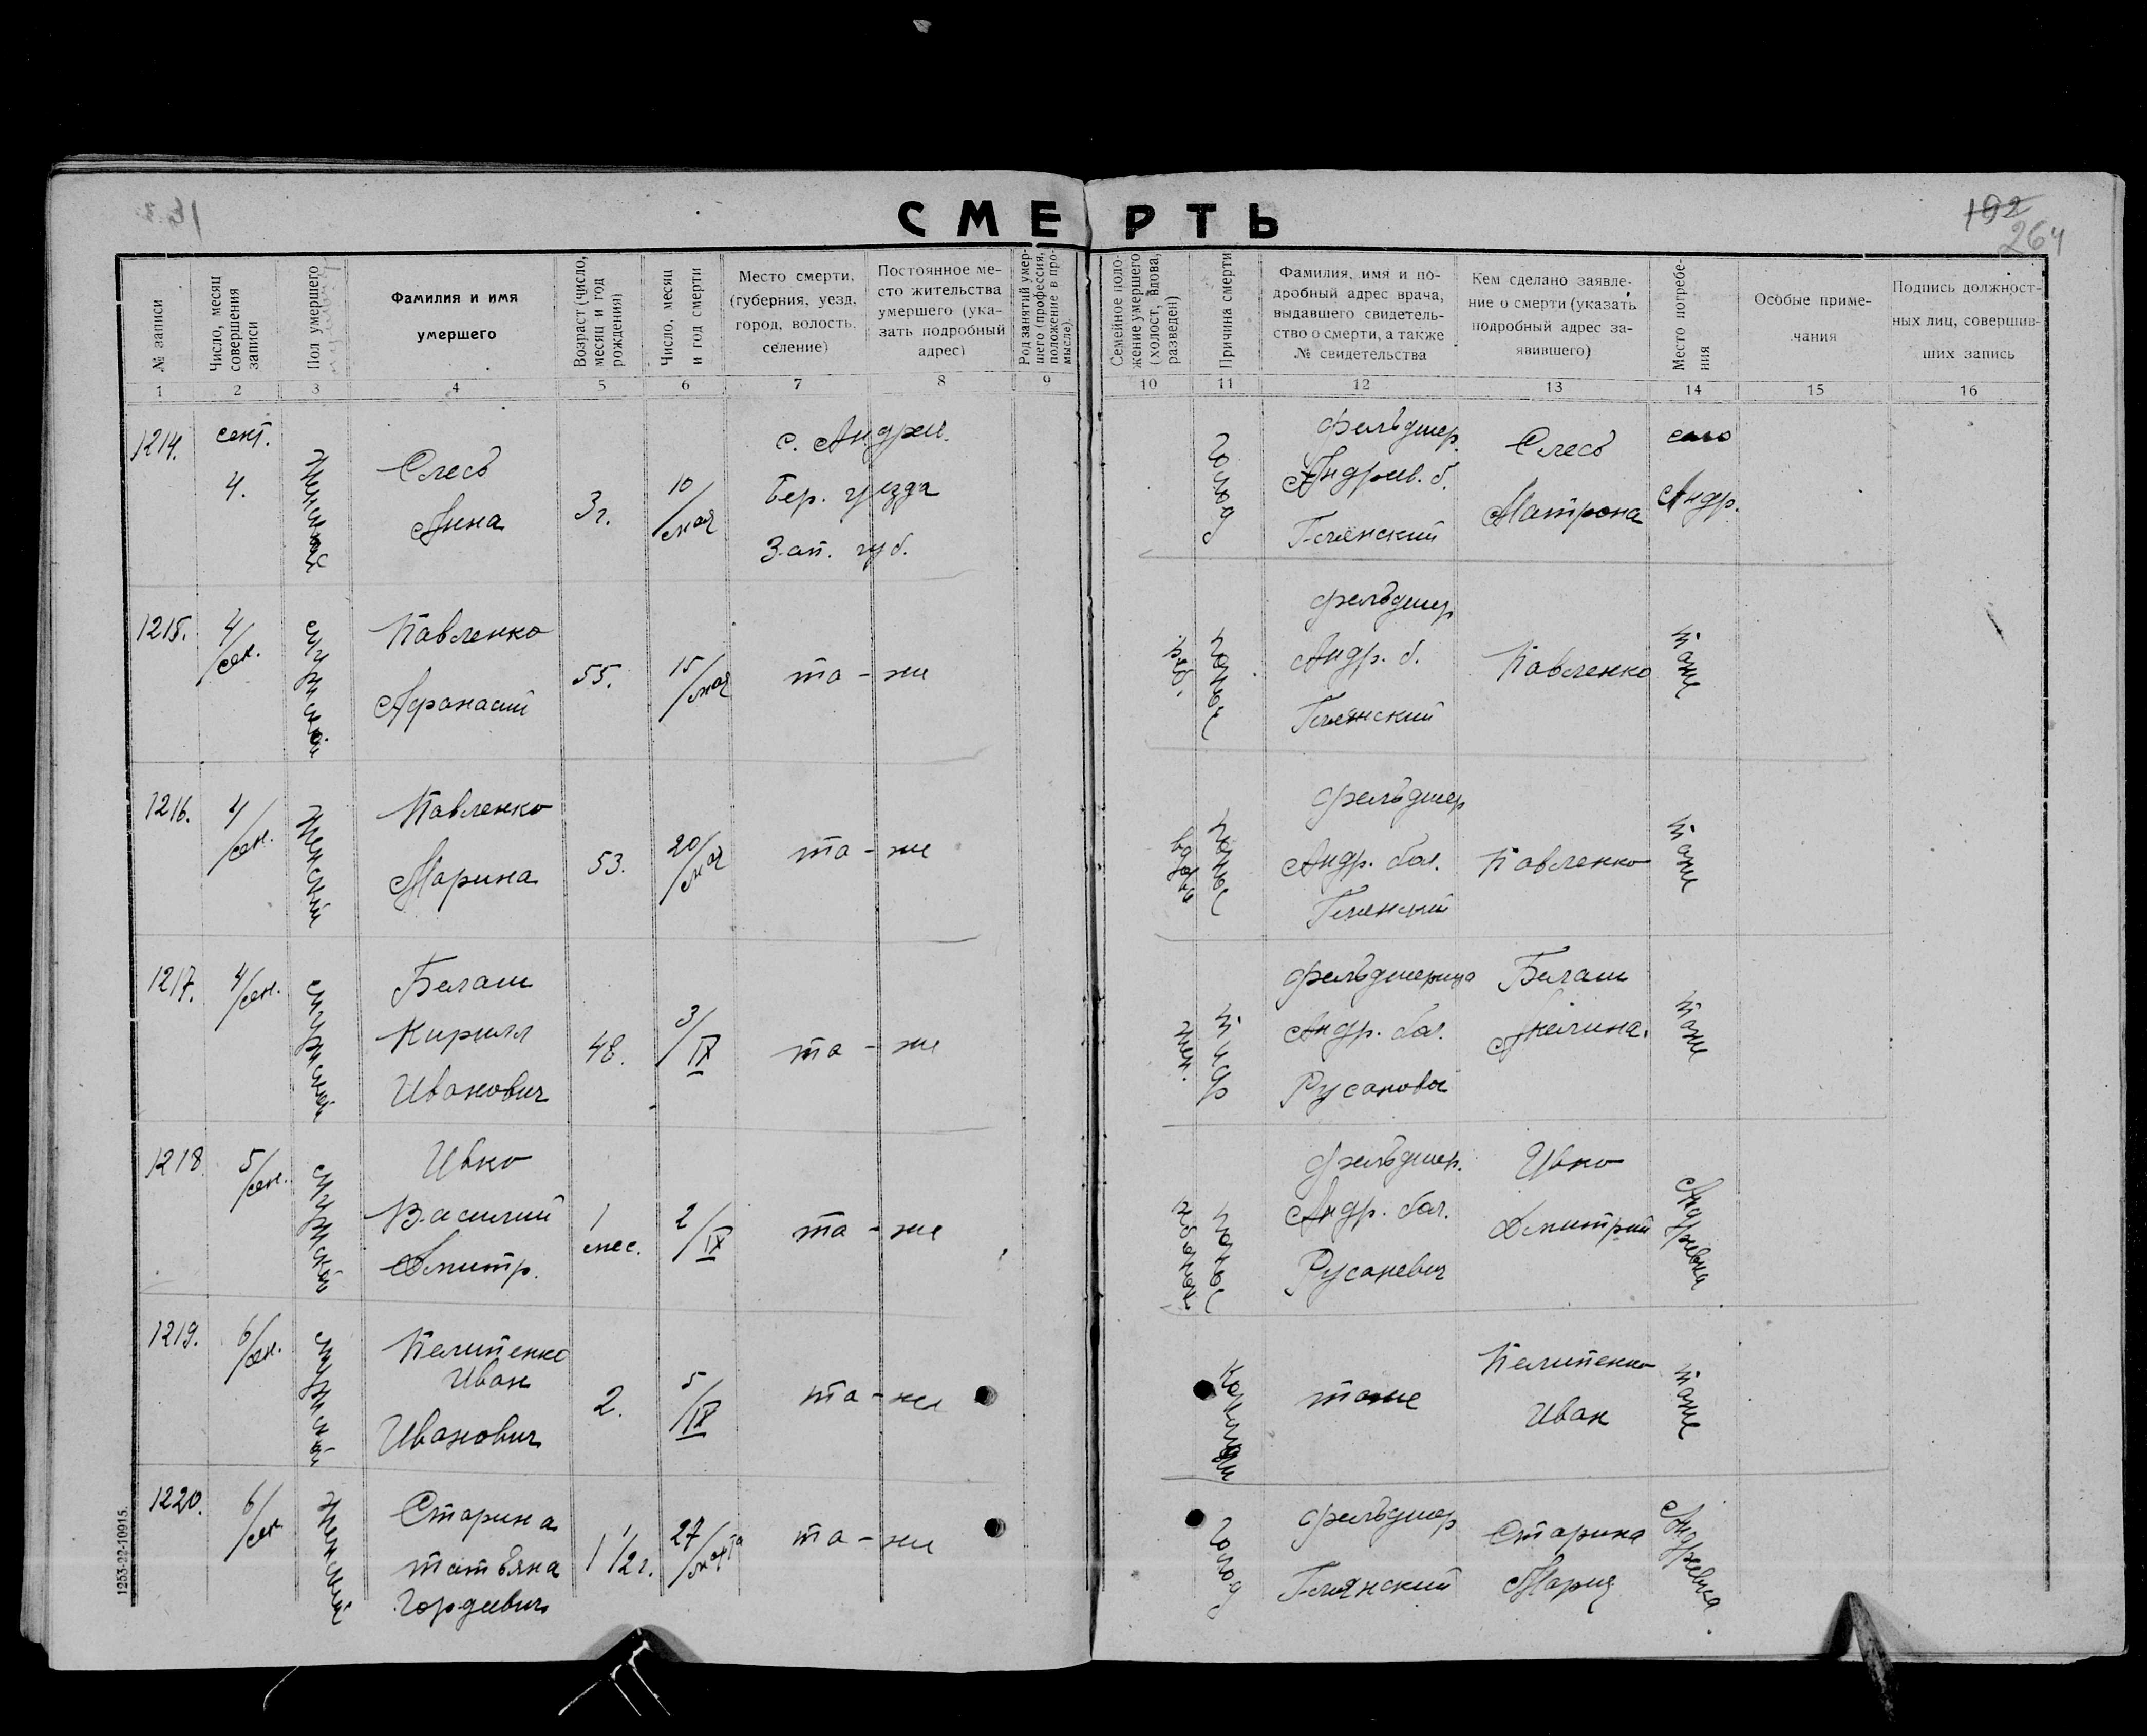 СМЕРТЬ
192
264
№ записи
Число, месяц совершения записи
Пол умершего
Фамилия и имя умершего
Возраст (число, месяц и год рождения)
Число, месяц и год смерти
Место смерти, (губерния, уезд, город, волость, селение)
Постоянное место жительства умершего (указать подробный адрес)
Род занятий умершего (профессия, положение в промысле).
Семейное положение умершего (холост, вдова, разведен)
Причина смерти
Фамилия, имя и подробный адрес врача, выдавшего свидетельство о смерти, а также № свидетельства
Кем сделано заявление о смерти (указать подробный адрес заявившего)
Место погребения
Особые примечания
Подпись должностных лиц, совершивших запись
1 2 3 4 5 6 7 8 9 10 11 12 13 14 15 16
1214. сент. 4. женский
Слесь
Анна
3 г.
10/мая
с. Андрей.
Бер. уезда
Зап. губ.
голод
фельдшер
Андреев. б.
Слесь
Матрона
село
Андр.
1215. 4/сен. мужской
Павленко
Афанасий
55.
15/мая
то-же
голод
фельдшер
Андр. б.
Павленко
тоже
1216. 4/сен. женский
Павленко
Марина
53.
20/мая
то-же
вдова
голод
фельдшер
Андр. бол.
Павленко
тоже
1217. 4/сен. мужской
Белаш
Кирилл
Иванович
48.
3/IX
то-же
жен.
тиф
фельдшерица
Андр. бол.
Белаш
тоже
1218 5/сен. мужской
Ивко
Василий
Дмитр.
1 мес.
2/IX
то-же
голод
фельдшер.
Андр. бол.
Русаневич
Ивко
Дмитрий
Андреевка
1219. 6/сен. мужской
Пелипенко
Иван
Иванович
2.
5/IX
то-же
тоже
Пелипенко
Иван
тоже
1220. 6/сен женский
Старина
Татьяна
Гордеевич
1 1/2 г.
27/марта
то-же
голод
фельдшер
Старина
Мария
Андреевка
1253-22-10915.